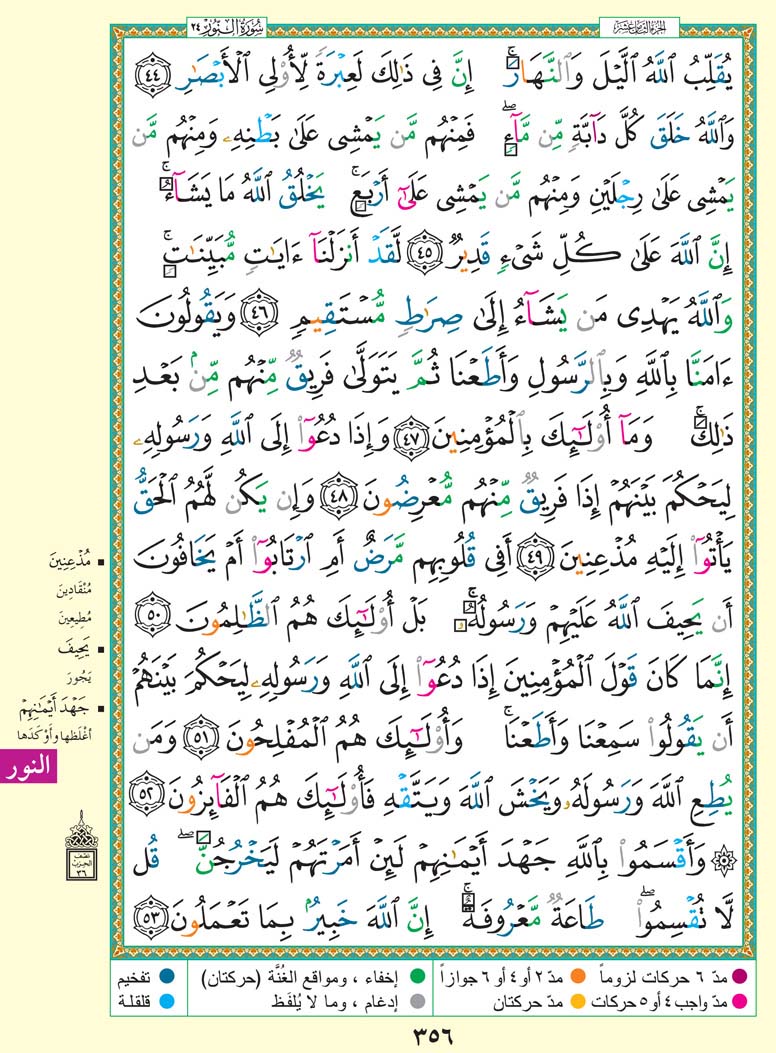 سُورَةُ النُّورِ ٢٤
الجزء الثامن عشر
يُقَلِّبُ ٱللَّهُ ٱلَّيْلَ وَٱلنَّهَارَ ۚ إِنَّ فِى ذَٰلِكَ لَعِبْرَةً لِّأُو۟لِى ٱلْأَبْصَٰرِ ٤٤
وَٱللَّهُ خَلَقَ كُلَّ دَآبَّةٍ مِّن مَّآءٍ ۖ فَمِنْهُم مَّن يَمْشِى عَلَىٰ بَطْنِهِۦ وَمِنْهُم مَّن
يَمْشِى عَلَىٰ رِجْلَيْنِ وَمِنْهُم مَّن يَمْشِى عَلَىٰٓ أَرْبَعٍ ۚ يَخْلُقُ ٱللَّهُ مَا يَشَآءُ ۚ
إِنَّ ٱللَّهَ عَلَىٰ كُلِّ شَىْءٍ قَدِيرٌ ٤٥ لَّقَدْ أَنزَلْنَآ ءَايَٰتٍ مُّبَيِّنَٰتٍ ۚ
وَٱللَّهُ يَهْدِى مَن يَشَآءُ إِلَىٰ صِرَٰطٍ مُّسْتَقِيمٍ ٤٦ وَيَقُولُونَ
ءَامَنَّا بِٱللَّهِ وَبِٱلرَّسُولِ وَأَطَعْنَا ثُمَّ يَتَوَلَّىٰ فَرِيقٌ مِّنْهُم مِّنۢ بَعْدِ
ذَٰلِكَ ۚ وَمَآ أُو۟لَٰٓئِكَ بِٱلْمُؤْمِنِينَ ٤٧ وَإِذَا دُعُوٓا۟ إِلَى ٱللَّهِ وَرَسُولِهِۦ
لِيَحْكُمَ بَيْنَهُمْ إِذَا فَرِيقٌ مِّنْهُم مُّعْرِضُونَ ٤٨ وَإِن يَكُن لَّهُمُ ٱلْحَقُّ
يَأْتُوٓا۟ إِلَيْهِ مُذْعِنِينَ ٤٩ أَفِى قُلُوبِهِم مَّرَضٌ أَمِ ٱرْتَابُوٓا۟ أَمْ يَخَافُونَ
أَن يَحِيفَ ٱللَّهُ عَلَيْهِمْ وَرَسُولُهُۥ ۚ بَلْ أُو۟لَٰٓئِكَ هُمُ ٱلظَّٰلِمُونَ ٥٠
إِنَّمَا كَانَ قَوْلَ ٱلْمُؤْمِنِينَ إِذَا دُعُوٓا۟ إِلَى ٱللَّهِ وَرَسُولِهِۦ لِيَحْكُمَ بَيْنَهُمْ
أَن يَقُولُوا۟ سَمِعْنَا وَأَطَعْنَا ۚ وَأُو۟لَٰٓئِكَ هُمُ ٱلْمُفْلِحُونَ ٥١ وَمَن
يُطِعِ ٱللَّهَ وَرَسُولَهُۥ وَيَخْشَ ٱللَّهَ وَيَتَّقْهِ فَأُو۟لَٰٓئِكَ هُمُ ٱلْفَآئِزُونَ ٥٢
۞ وَأَقْسَمُوا۟ بِٱللَّهِ جَهْدَ أَيْمَٰنِهِمْ لَئِنْ أَمَرْتَهُمْ لَيَخْرُجُنَّ ۖ قُل
لَّا تُقْسِمُوا۟ ۖ طَاعَةٌ مَّعْرُوفَةٌ ۚ إِنَّ ٱللَّهَ خَبِيرٌۢ بِمَا تَعْمَلُونَ ٥٣
▪ مُذْعِنِينَ
مُنْقَادِينَ
مُطِيعِينَ
▪ يَحِيفَ
يَجُورَ
▪ جَهْدَ أَيْمَٰنِهِمْ
أَغْلَظَها وأَوْكَدَها
النور
نصف
الحزب
٣٦
مدّ ٦ حركات لزوماً ● مدّ ٢ أو ٤ أو ٦ جوازاً ● إخفاء ، ومواقع الغُنَّة (حركتان) ● تفخيم
مدّ واجب ٤ أو ٥ حركات ● مدّ حركتان ● إدغام ، وما لا يُلفَظ ● قلقلة
٣٥٦